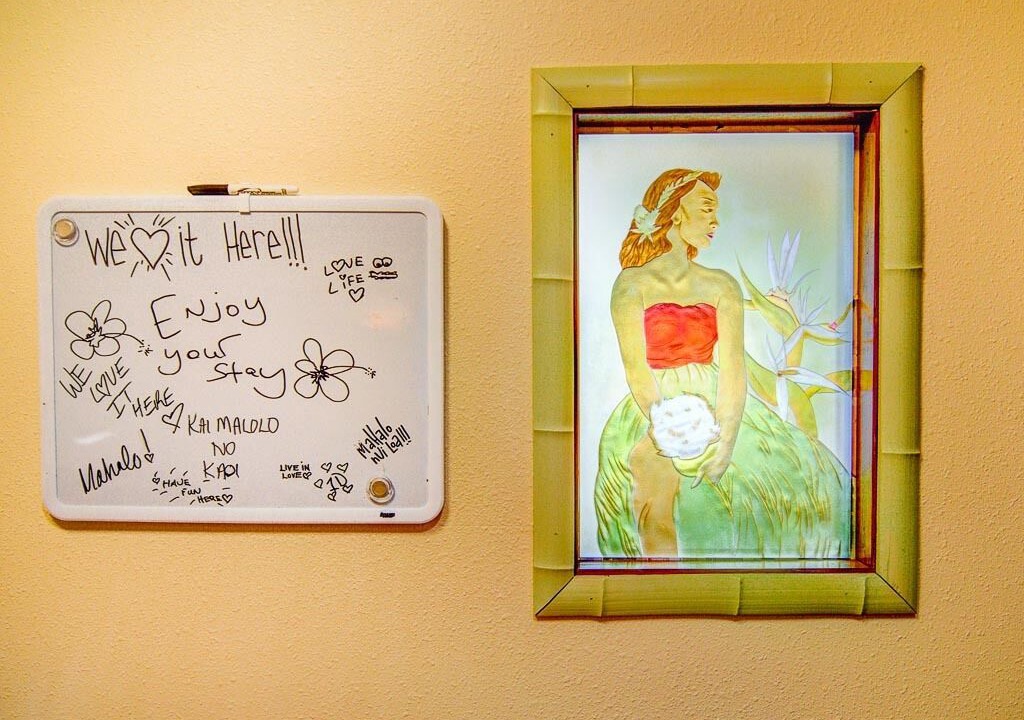 We ♡ it Here!!!
LOVE
LiFE
Enjoy
your
Stay
WE
LOVE
IT HERE
KAI MALOLO
NO
KAOI
Mahalo!
HAVE
FUN
HERE
LIVE IN
LOVE
1D
Mahalo
Nui Loa!!!